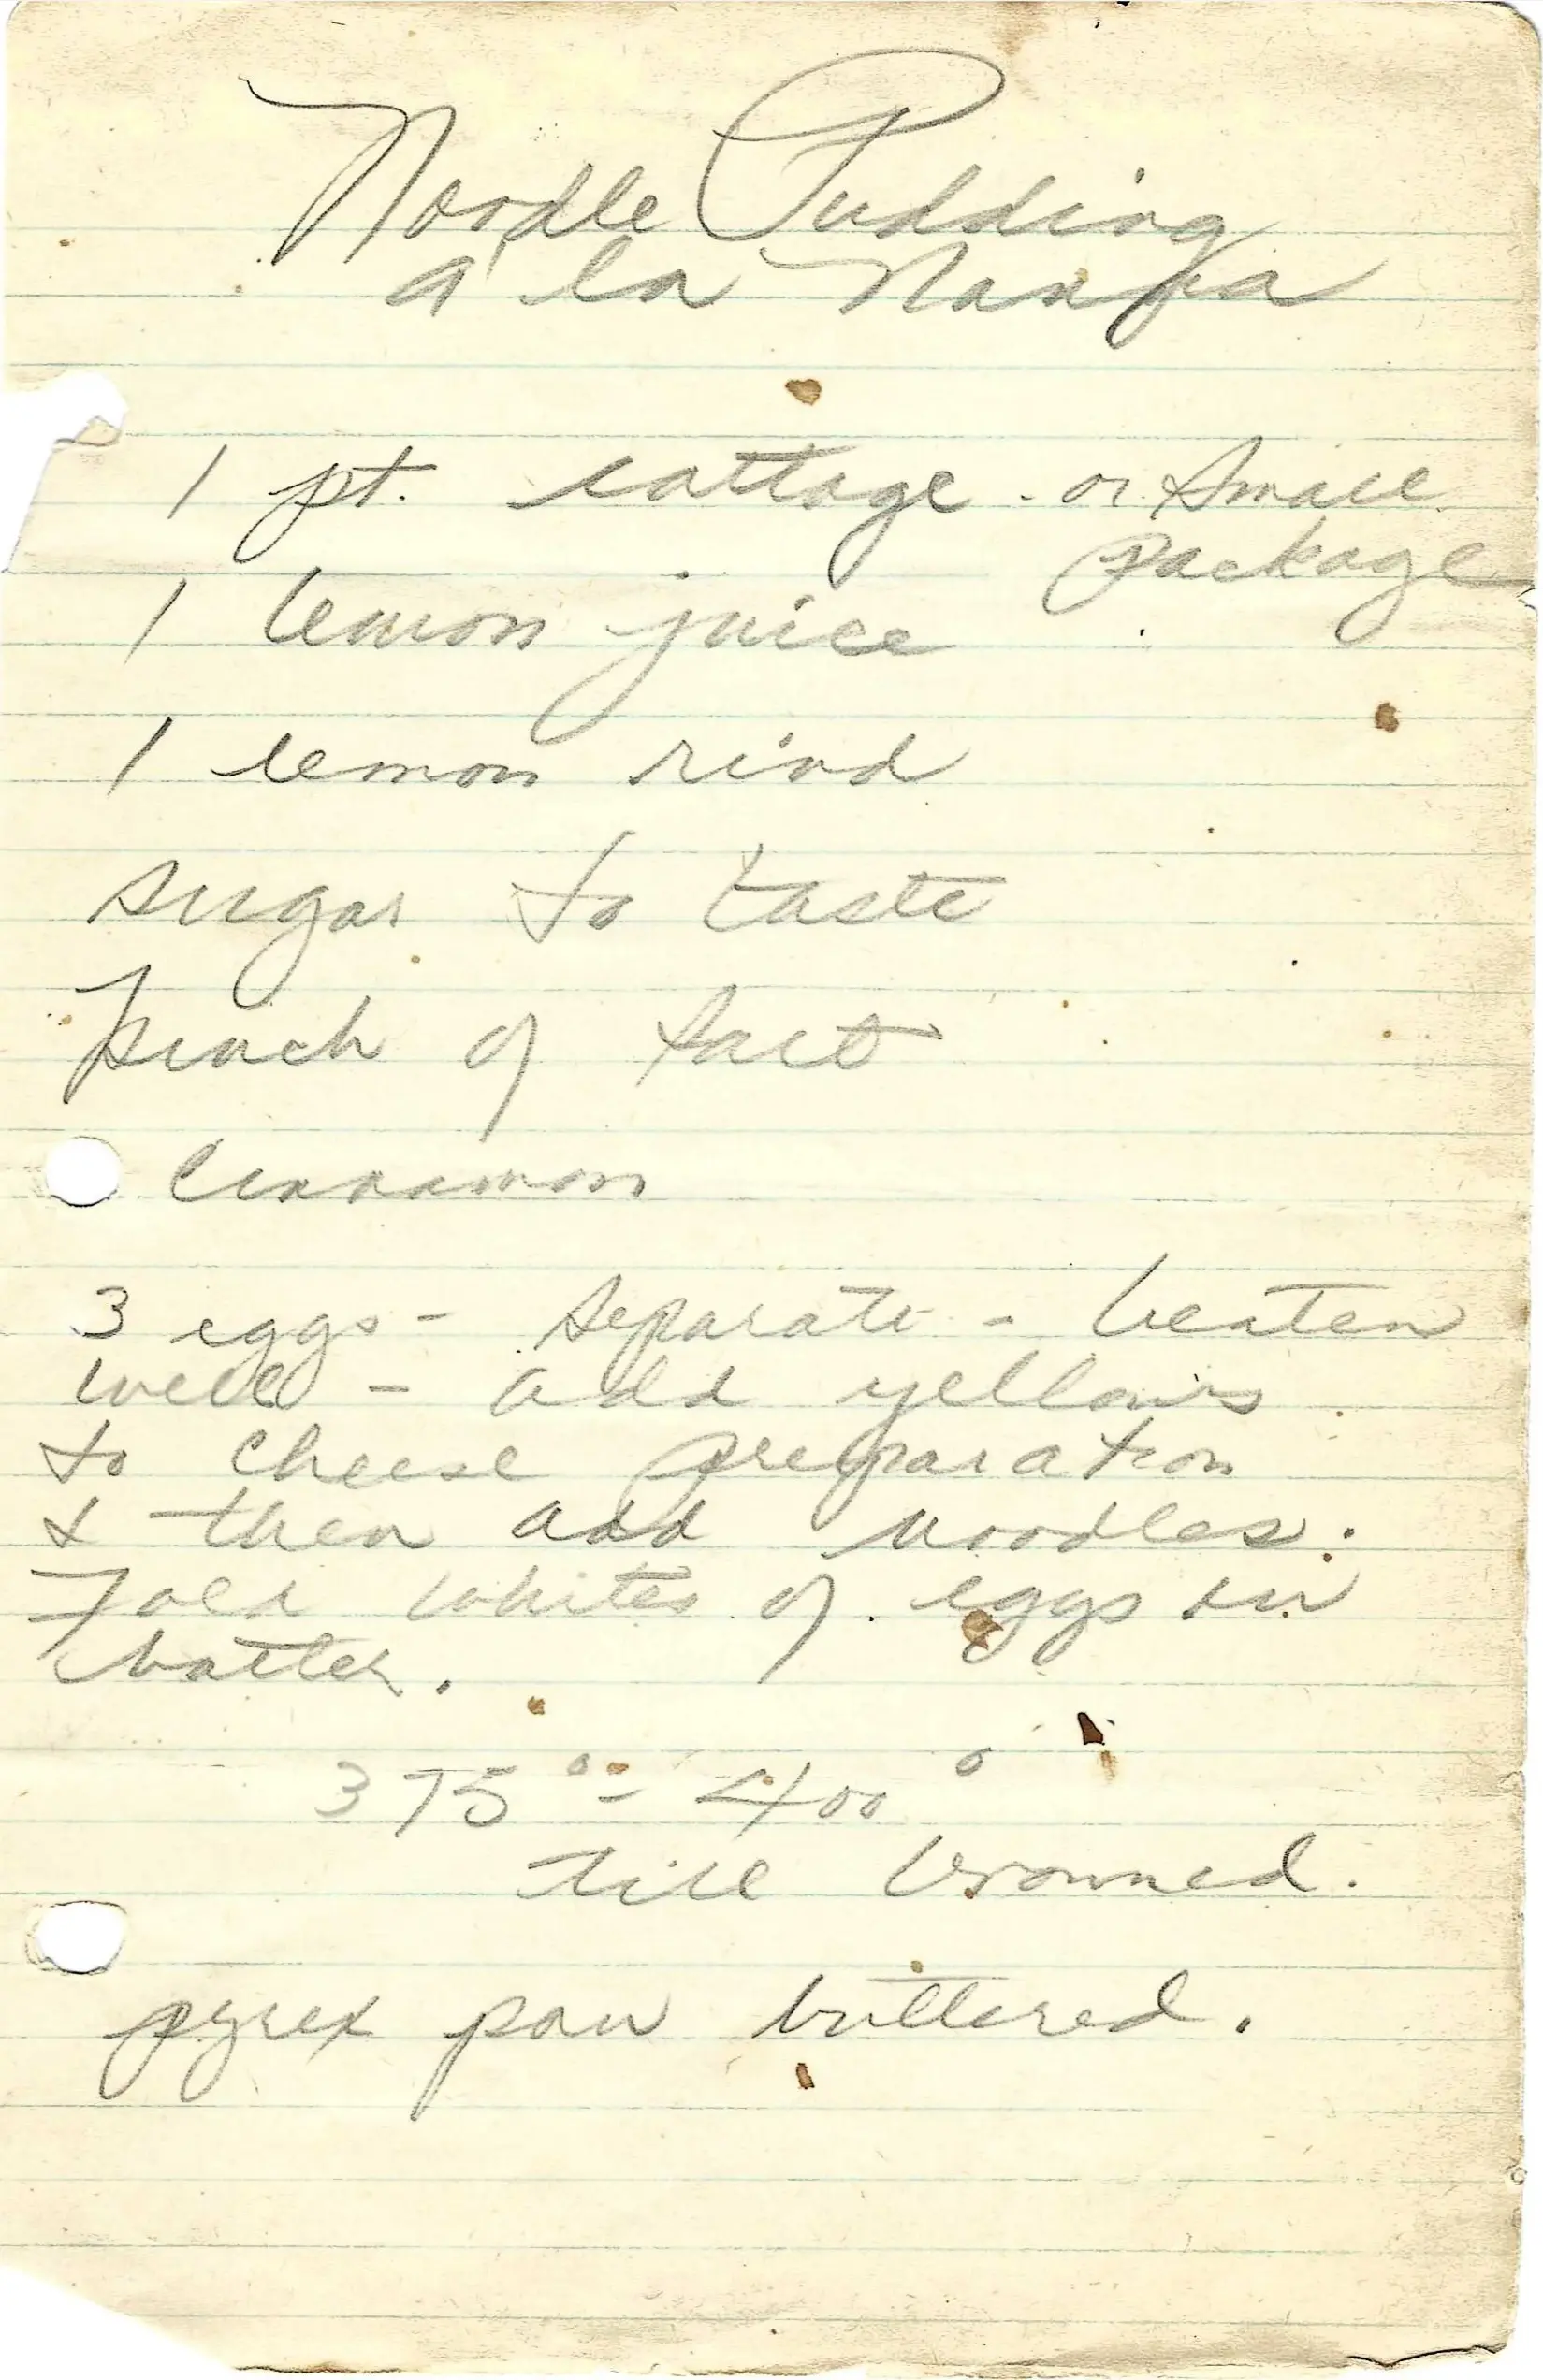 Noodle Pudding
a' la Nanpa
1 pt. cottage - or small
package
1 lemon juice
1 lemon rind
sugar to taste
pinch of salt
Cinnamon
3 eggs - separate - beaten
well - add yellows
to cheese preparation
& then add noodles.
Fold whites of eggs in
batter.
375° - 400°
till browned.
pyrex pan buttered.